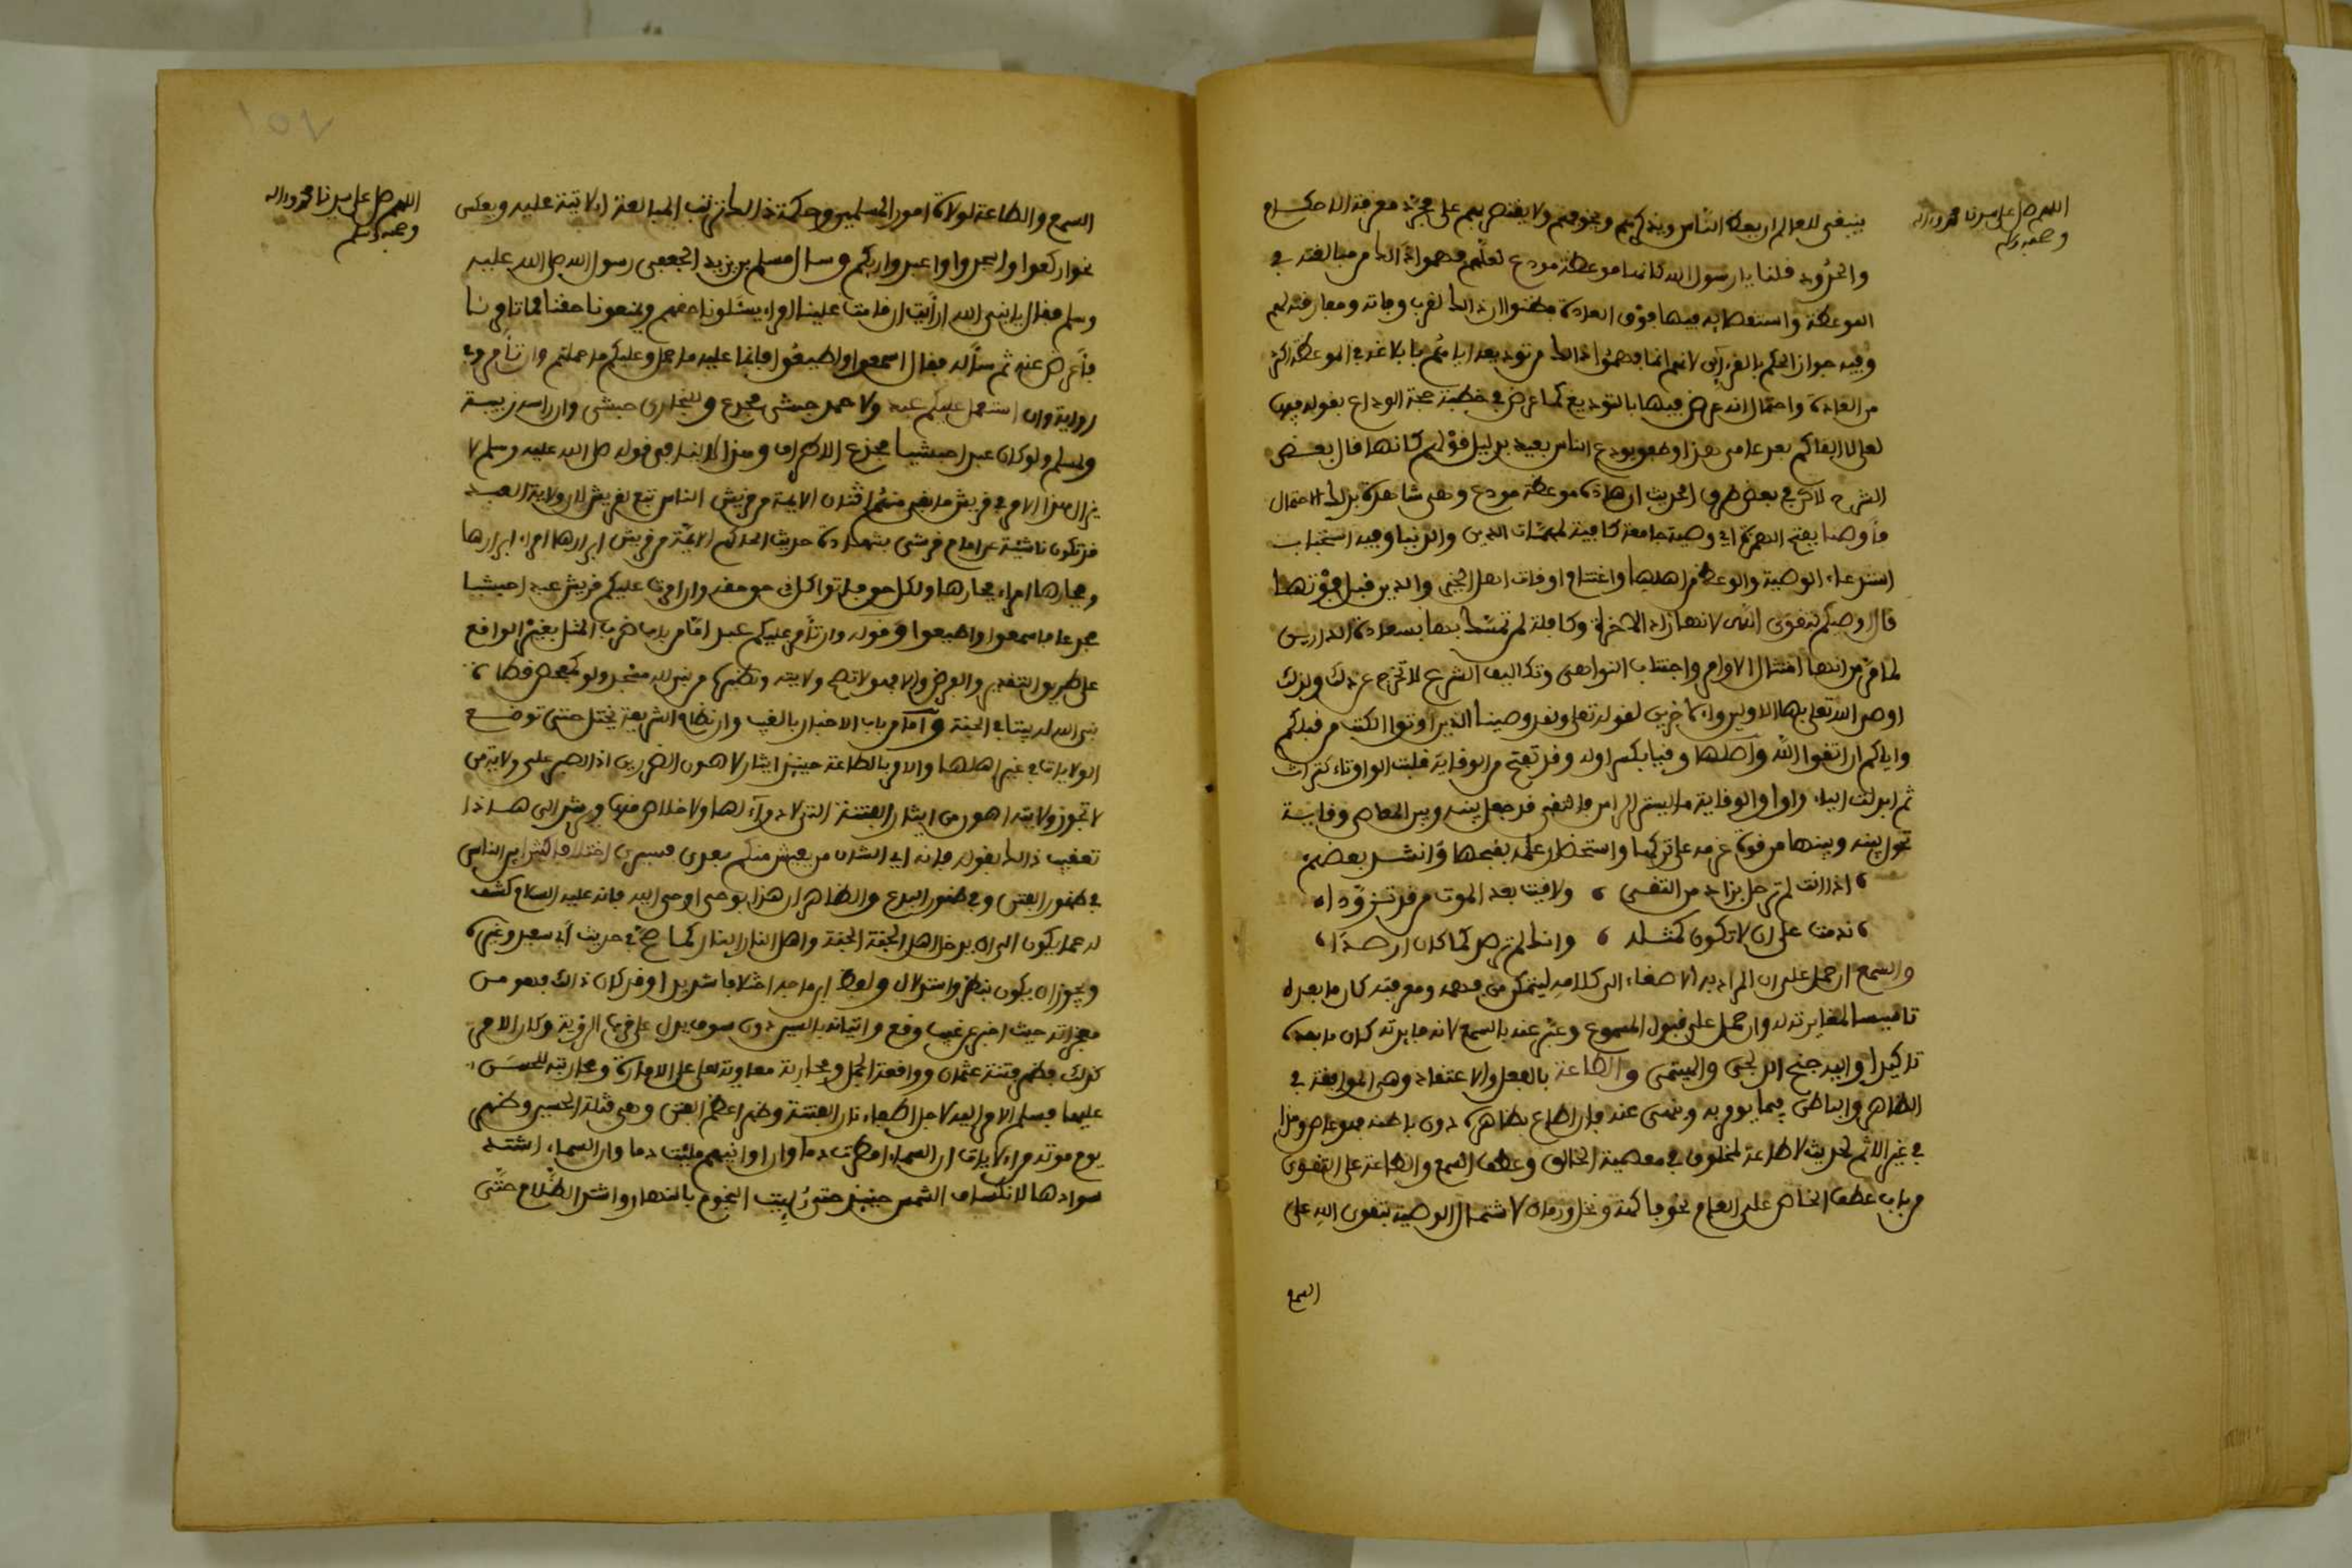 اللهم صل على سيدنا محمد وءاله
وصحبه وسلم
ينبغي للعالم ان يعظ الناس ويذكرهم ويخوفهم ولا يقتصر بهم على مجرد معرفة الاحكام
والحدود فلنا يا رسول الله كانها موعظة مودع لعلهم فهموا ذالك من مبالغته في
الموعظة واستقصائه فيها فوق العادة فظنوا ان ذالك لقرب وفاته ومفارقته لهم
وفيه جواز الحكم بالقرائن لانهم انما فهموا ذالك من توديعه اياهم بابلاغه في الموعظة اكثر
من العادة واحتمال انه عرض فيها بالتوديع كما عرض في خطبة حجة الوداع بقوله
لعلي لا القاكم بعد عامي هذا وطفق يودع الناس بعيد بدليل قولهم كانها قال بعض
الشرح لاكن في بعض طرق الحديث ان هاذه موعظة مودع وهي شاهدة بذلك الاحتمال
فأوصنا بفتح الهمزة اي وصية جامعة كافية لمهمات الدين والدنيا وفيه استحباب
استدعاء الوصية والوعظ من اهلها واغتنام اوقات اهل الخير والدين قبل فوتها
قال اوصيكم بتقوى الله لانها زاد الاخرة وكافلة لمن تمسك بها بسعادة الدارين
لما مر من انها امتثال الاوامر واجتناب النواهي وتكاليف الشرع لا تخرج عن ذلك وبذلك
اوصى الله تعلى بها الاولين والاخرين لقوله تعلى ولقد وصينا الذين اوتوا الكتب من قبلكم
واياكم ان اتقوا الله واصلها وقيا بكسر اوله وقد تفتح من الوقاية قلبت الواو تاء كتراث
ثم ابدلت الياء واوا والوقاية ما يستر الراس فالمتقي قد جعل بينه وبين المعاصي وقاية
تحول بينه وبينها من قوة عزمه على تركها واستحضار علمه بقبحها وانشد بعضهم
اذا انت لم ترحل بزاد من التقى ، ولاقيت بعد الموت من قد تزودا
ندمت على ان لا تكون كمثله ، وانك لم ترصد كما كان ارصدا
والسمع ان حمل على ان المراد به الاصغاء الى كلامه ليتمكن من فهمه ومعرفته كان ما بعده
تاسيسا لمغايرته له وان حمل على قبول المسموع وعبر عنه بالسمع لانه فايدته كان ما بعده
تاكيدا واليه جنح ابن حجر والهيتمي والطاعة بالفعل والاعتقاد وهي الموافقة في
الظاهر والباطن فيما يومر به وينهى عنه فان اطاع بظاهره دون باطنه فهو عاص وهذا
في غير الاثم لحديث لا طاعة لمخلوق في معصية الخالق وعطف السمع والطاعة على التقوى
من باب عطف الخاص على العام نحو فاكهة ونخل ورمان لاشتمال الوصية بتقوى الله على
السمع
اللهم صل على سيدنا محمد وءاله
وصحبه وسلم
السمع والطاعة لولاة امور المسلمين وحكمة ذالك ترتب المبالغة الاتية عليه وبعكس
نحو اركعوا واسجدوا واعبدوا ربكم وسأل مسلم بن يزيد الجعفي رسول الله صلى الله عليه
وسلم فقال يا نبي الله ارأيت ان قامت علينا امراء يسئلونا حقهم ويمنعونا حقنا فما تامرنا
فأعرض عنه ثم سأله فقال اسمعوا واطيعوا فانما عليهم ما حملوا وعليكم ما حملتم وان تأمر وفي
رواية وان استعمل عليكم عبد ولاحمد حبشي مجدع وللبخاري حبشي وان راسه زبيبة
ولمسلم ولو كان عبدا حبشيا مجدع الاطراف وهذا لا ينافي قوله صلى الله عليه وسلم لا
يزال هذا الامر في قريش ما بقي منهم اثنان الايمة من قريش الناس تبع لقريش لان ولاية العبد
قد تكون ناشئة عن امام قرشي بشهادة حديث الحاكم الايمة من قريش ابرارها امراء ابرارها
وفجارها امراء فجارها ولكل حق فاتوا كل ذي حق حقه وان امرت عليكم قريش عبدا حبشيا
مجدعا فاسمعوا واطيعوا وقوله وان تأمر عليكم عبد اما من باب ضرب المثل بغير الواقع
على طريق التقدير والفرض والا فهو لا تصح ولايته ونظيره من بنى لله مسجدا ولو كمفحص قطاة
بنى الله له بيتا في الجنة واما من باب الاخبار بالغيب وان نظام الشريعة يختل حتى توضع
الولايات في غير اهلها والامر بالطاعة حينئذ ايثار لاهون الضررين اذ الصبر على ولاية من
لا تجوز ولايته اهون من ايثار الفتنة التي لا دواء لها ولا خلاص منها ويرشد الى هاذا
تعقيب ذالك بقوله فانه اي الشان من يعيش منكم بعدي فسيرى اختلافا كثيرا بين الناس
في ظهور الفتن وفي ظهور البدع والظاهر ان هذا بوحي اوحي اليه فانه عليه السلام كشف
له عما يكون الى ان يدخل اهل الجنة الجنة واهل النار النار كما صح في حديث ابي سعيد وغيره
ويجوز ان يكون بنظر واستدلال ولعله اختلافا شديدا وقد كان ذالك فهو من
معجزاته حيث اخبر عن غيب وقع واتيانه بالسين دون سوف يدل على قرب الرؤية وكان الامر
كذلك فظهر فتنة عثمان وواقعة الجمل ومحاربة معاوية لعلي على الامارة ومحاربته للحسن
عليهما فسلم الامر اليه لاجل اطفاء نار الفتنة وظهر اعظم الفتن وهي قتلة الحسين وظهر
يوم موته من الايات ان السماء امطرت دما وان اوانيهم ملئت دما وان السماء اشتد
سوادها لانكساف الشمس حينئذ حتى رئيت النجوم بالنهار واشتد الظلام حتى
١٥٧